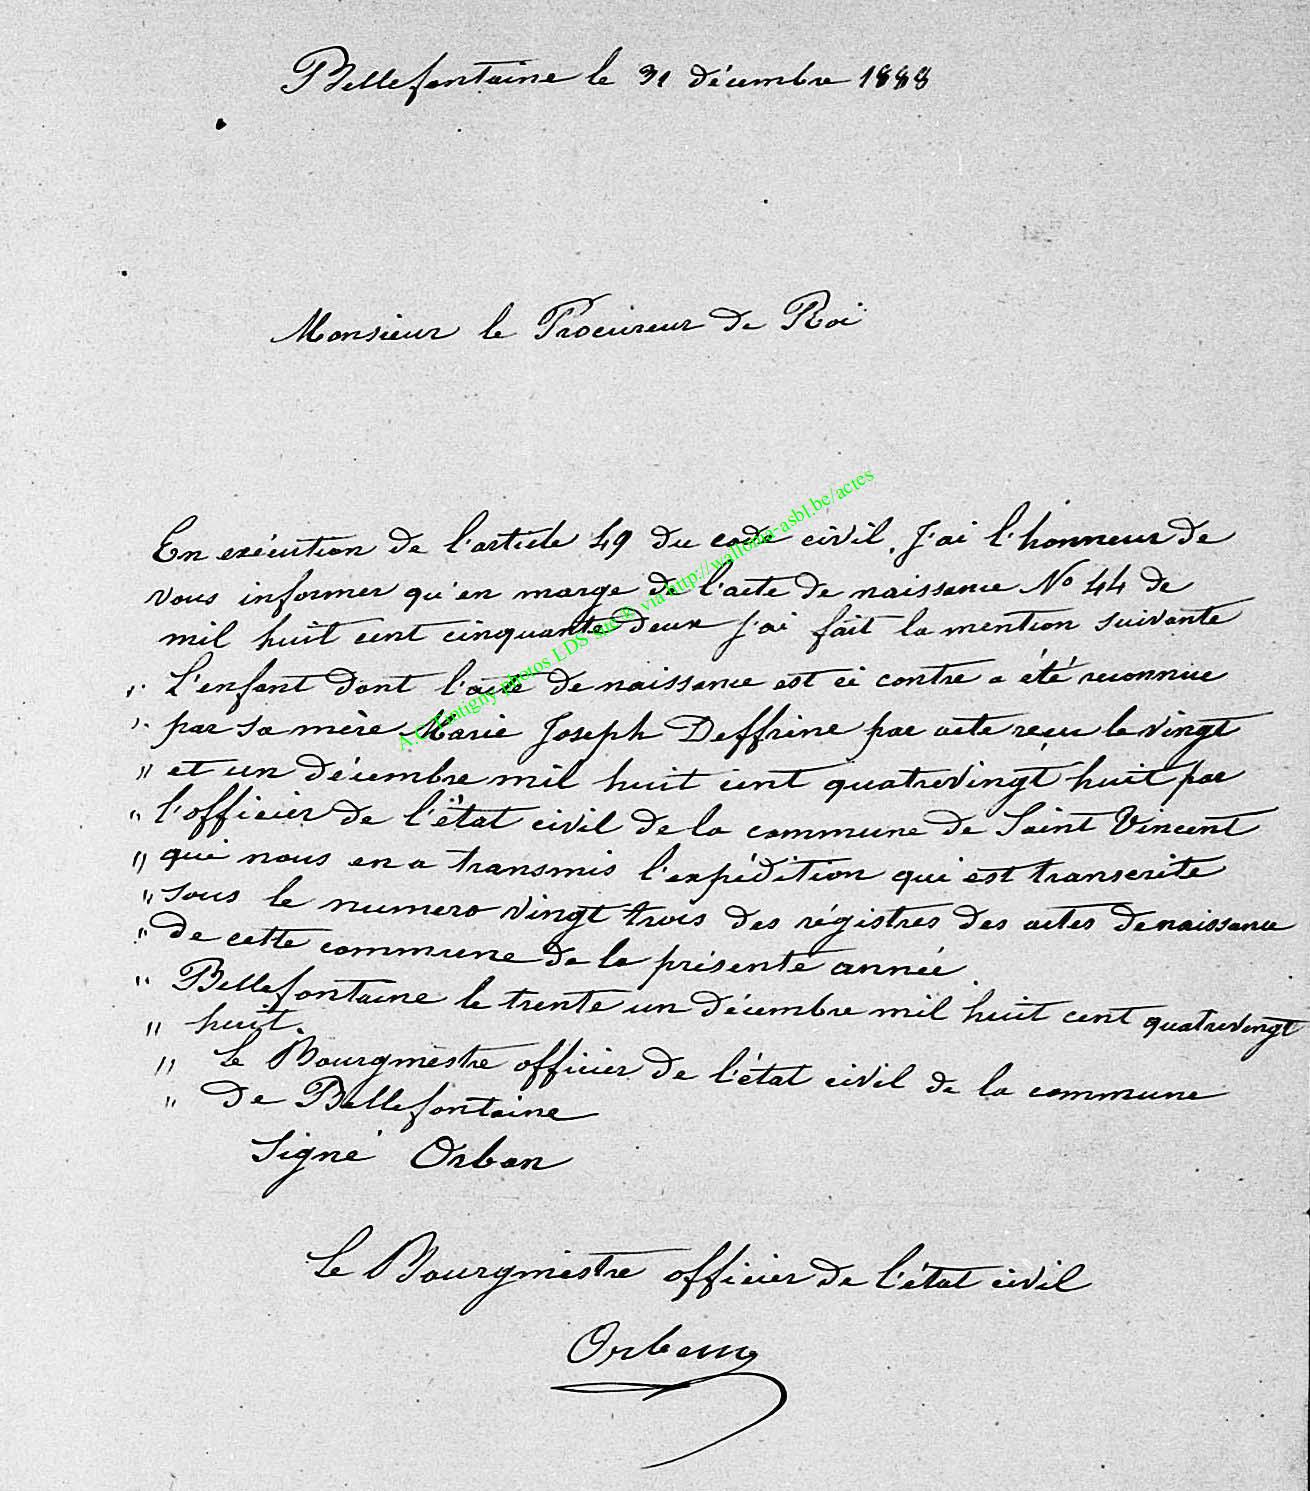 Bellefontaine le 31 décembre 1888
Monsieur le Procureur de Roi
En exécution de l'article 49 du code civil, J'ai l'honneur de
vous informer qu'en marge de l'acte de naissance No 44 de
mil huit cent cinquante deux j'ai fait la mention suivante
" L'enfant dont l'acte de naissance est ci contre a été reconnue
" par sa mère Marie Joseph Deffrine par acte reçu le vingt
" et un décembre mil huit cent quatrevingt huit par
" l'officier de l'état civil de la commune de Saint Vincent
" qui nous en a transmis l'expédition qui est transcrite
" sous le numero vingt trois des régistres des actes de naissance
" de cette commune de la présente année
" Bellefontaine le trente un décembre mil huit cent quatrevingt
" huit.
" Le Bourgmestre officier de l'état civil de la commune
" De Bellefontaine
Signé Orban
Le Bourgmestre officier de l'état civil
Orban
A.C. Tintigny photos LDS via http://wallonia-asbl.be/actes